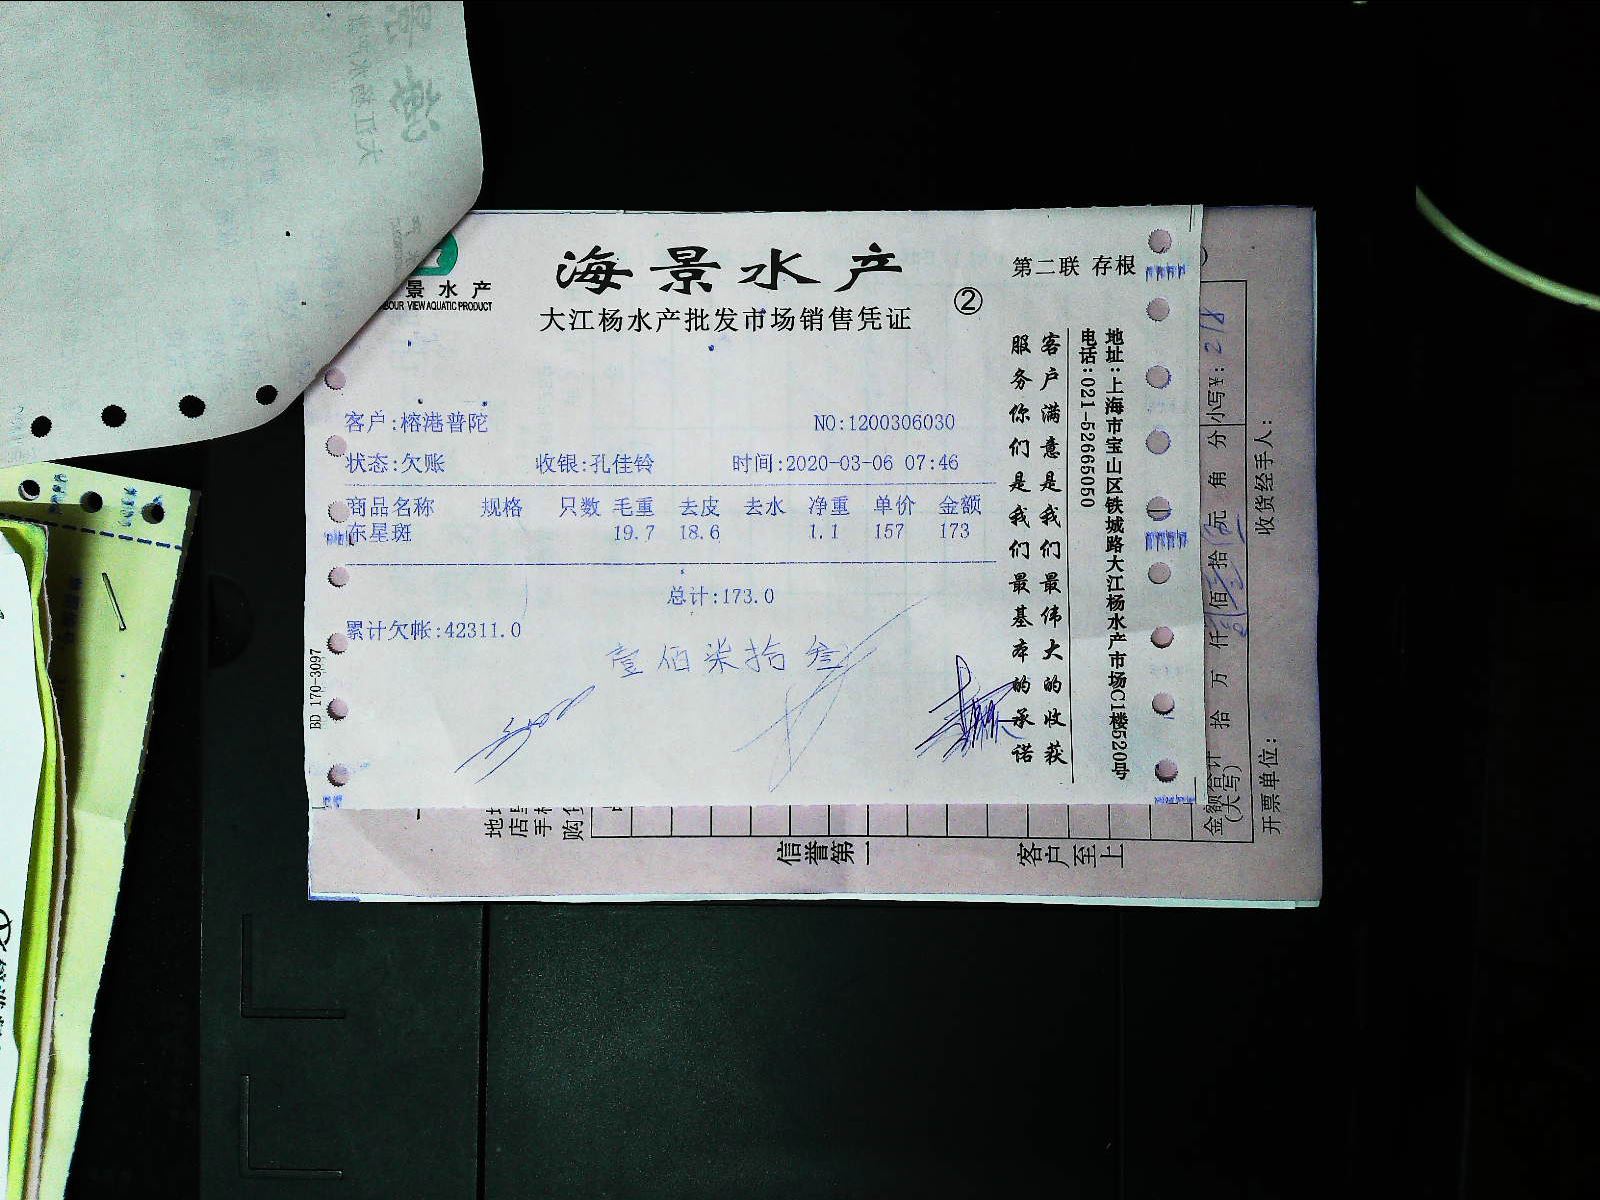 海景水产
大江杨水产批发市场销售凭证
②
第二联 存根
景水产
VIEW AQUATIC PRODUCT
客户:榕港普陀
NO:1200306030
状态:欠账 收银:孔佳铃 时间:2020-03-06 07:46
商品名称 规格 只数 毛重 去皮 去水 净重 单价 金额
东星斑 19.7 18.6 1.1 157 173
总计:173.0
累计欠帐:42311.0
壹佰柒拾叁
BD 170-3097
客户满意是我们最伟大的收获
服务你们是我们最基本的承诺
地址:上海市宝山区铁城路大江杨水产市场C1楼520号
电话:021-52665050
金额合计(大写) 拾 万 仟 佰 拾 元 角 分 小写¥: 218
开票单位: 收货经手人:
信誉第一 客户至上